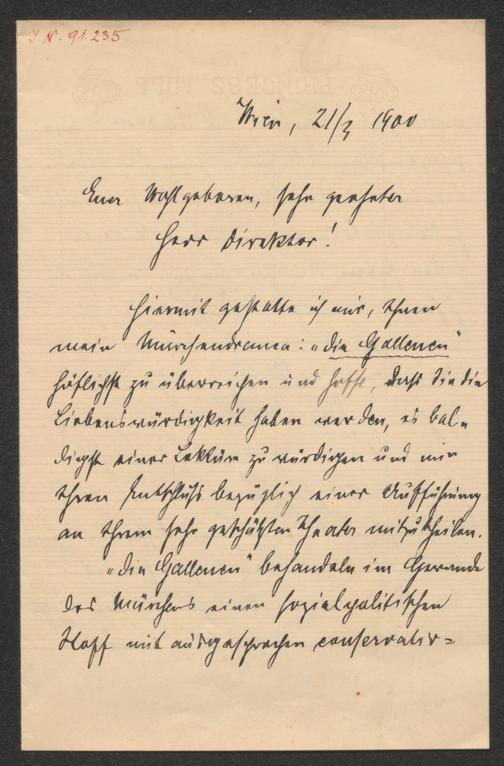 J. N. 91.235
PRINCESS MUFF
Wien, 21/3 1900
Euer Wohlgeboren, sehr geehrter
Herr Direktor!
Hiermit gestatte ich mir, Ihnen
mein Märchendrama: „die Gallenen“
höflichst zu überreichen und hoffe, dass Sie die
Liebenswürdigkeit haben werden, es bal-
digst einer Lektüre zu würdigen und mir
Ihren Entschluss bezüglich einer Aufführung
an Ihrem sehr geschätzten Theater mitzutheilen.
„die Gallenen“ behandeln im Gewande
des Märchens einen sozialpolitischen
Stoff mit ausgesprochen conservativ=